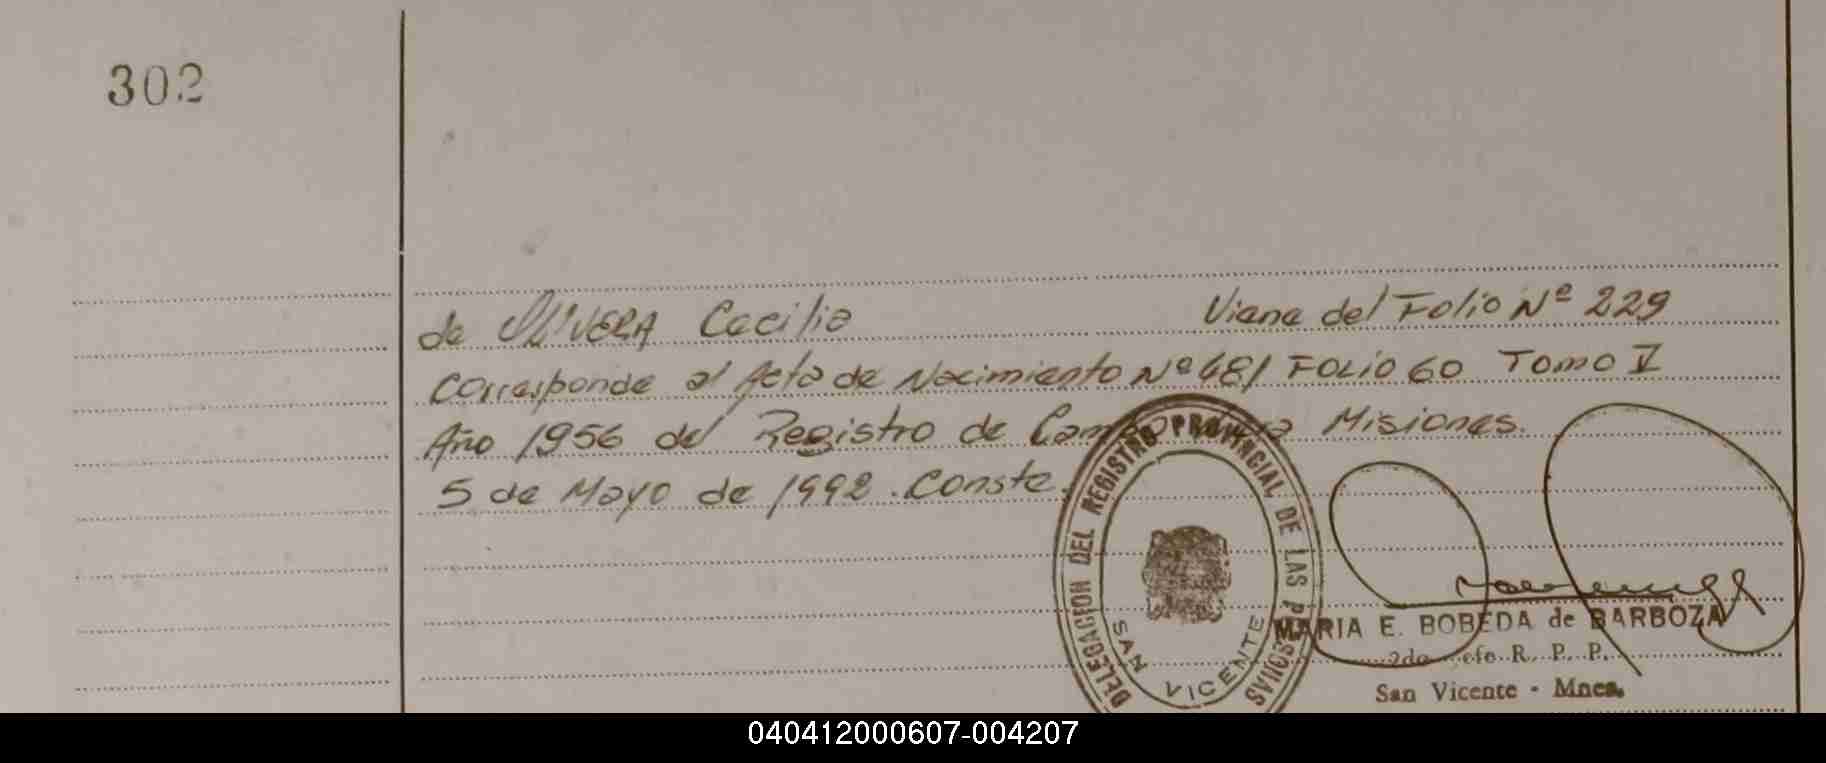 302
de OLIVERA Cecilia Viene del Folio Nº 229
Corresponde al Acta de Nacimiento Nº 481 FOLIO 60 TOMO V
Año 1956 del Registro de Misiones.
5 de Mayo de 1992. Conste.
DELEGACION DEL REGISTRO PROVINCIAL DE LAS PERSONAS
SAN VICENTE
MARIA E. BOBEDA de BARBOZA
2do Jefe R. P. P.
San Vicente - Mnes.
040412000607-004207